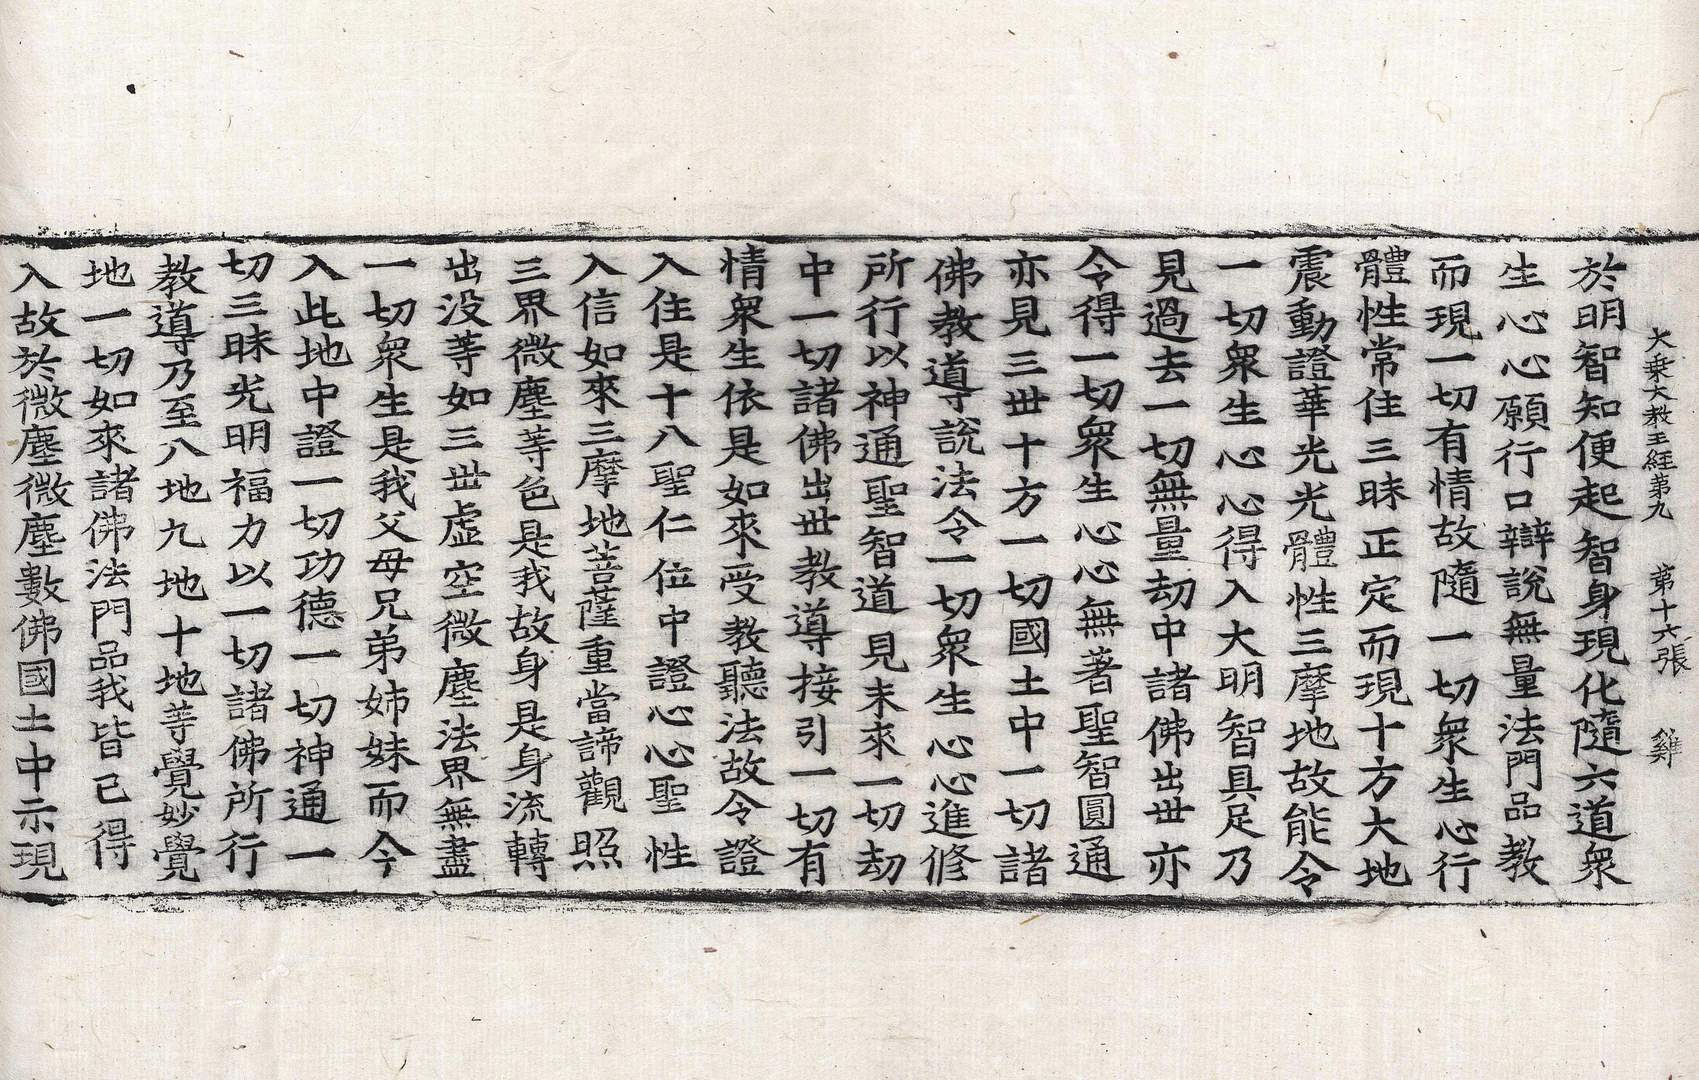 大乗大教王経第九 第十六張 雞
於明智知便起智身現化隨六道衆
生心心願行口辯說無量法門品教
而現一切有情故隨一切衆生心行
體性常住三昧正定而現十方大地
震動證華光光體性三摩地故能令
一切衆生心心得入大明智具足乃
見過去一切無量劫中諸佛出世亦
令得一切衆生心心無著聖智圓通
亦見三世十方一切國土中一切諸
佛教導說法令一切衆生心心進修
所行以神通聖智道見未來一切劫
中一切諸佛出世教導接引一切有
情衆生依是如來受教聽法故令證
入住是十八聖仁位中證心心聖性
入信如來三摩地菩薩重當諦觀照
三界微塵等色是我故身是身流轉
出没等如三世虛空微塵法界無盡
一切衆生是我父母兄弟姉妹而今
入此地中證一切功德一切神通一
切三昧光明福力以一切諸佛所行
教導乃至八地九地十地等覺妙覺
地一切如來諸佛法門品我皆已得
入故於微塵微塵數佛國土中示現